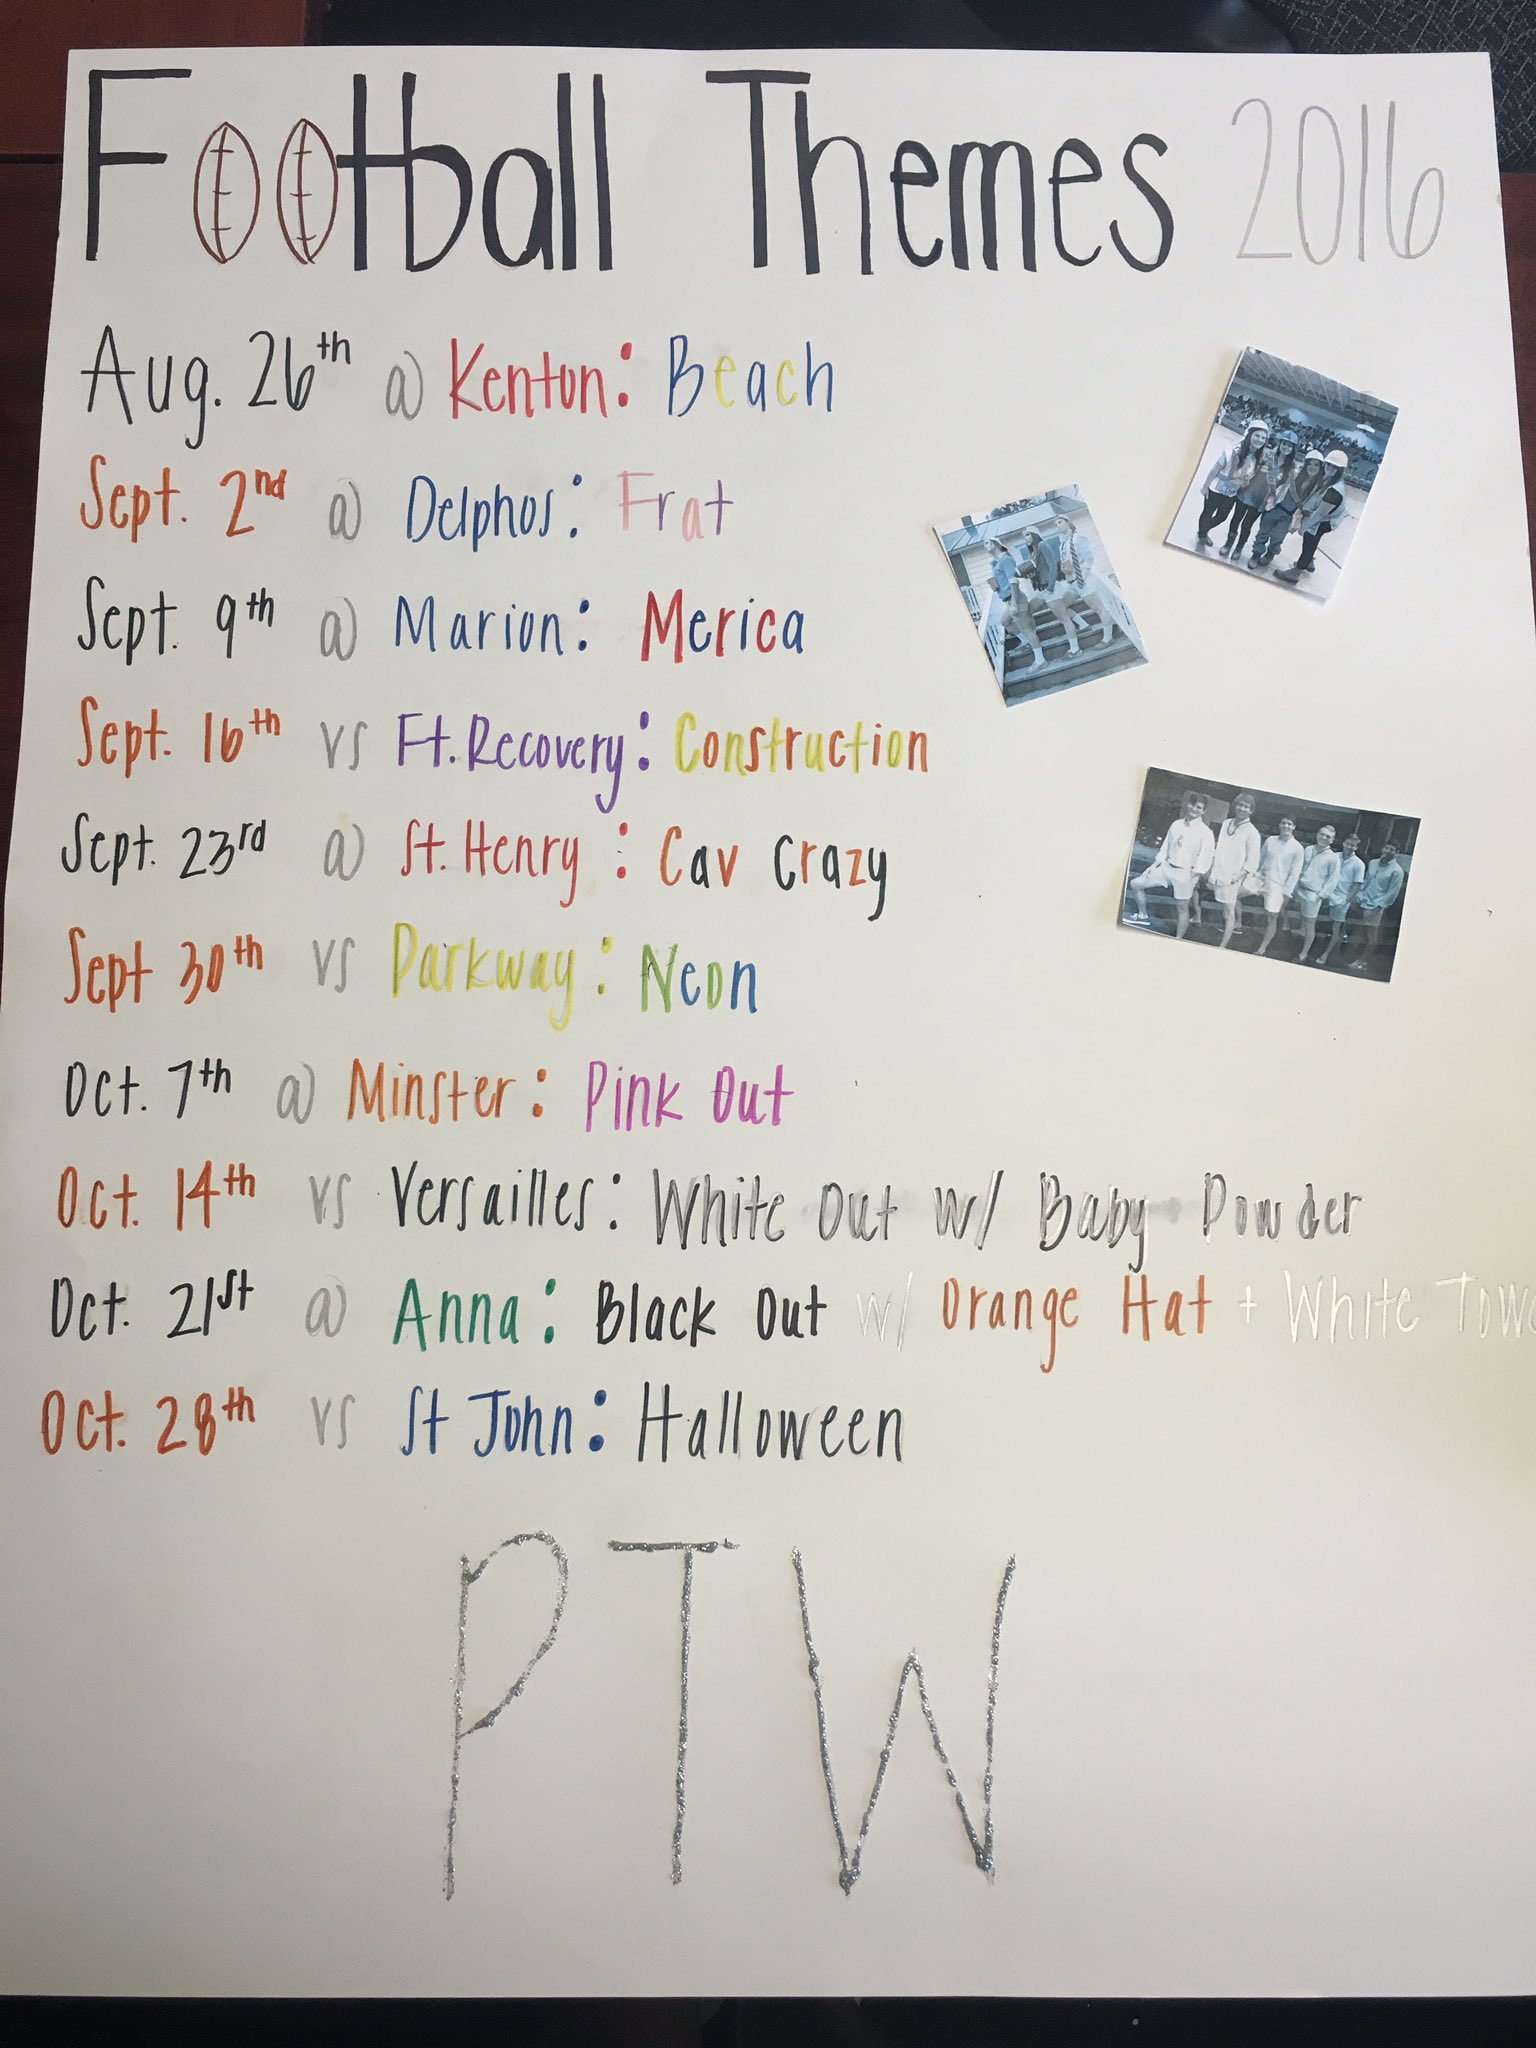 Football Themes 2016
Aug. 26th @ Kenton: Beach
Sept. 2nd @ Delphos: Frat
Sept. 9th @ Marion: Merica
Sept. 16th vs Ft. Recovery: Construction
Sept. 23rd @ St. Henry: Cav Crazy
Sept 30th vs Parkway: Neon
Oct. 7th @ Minster: Pink Out
Oct. 14th vs Versailles: White Out w/ Baby Powder
Oct. 21st @ Anna: Black Out w/ Orange Hat + White Tow
Oct. 28th vs St John: Halloween
PTW